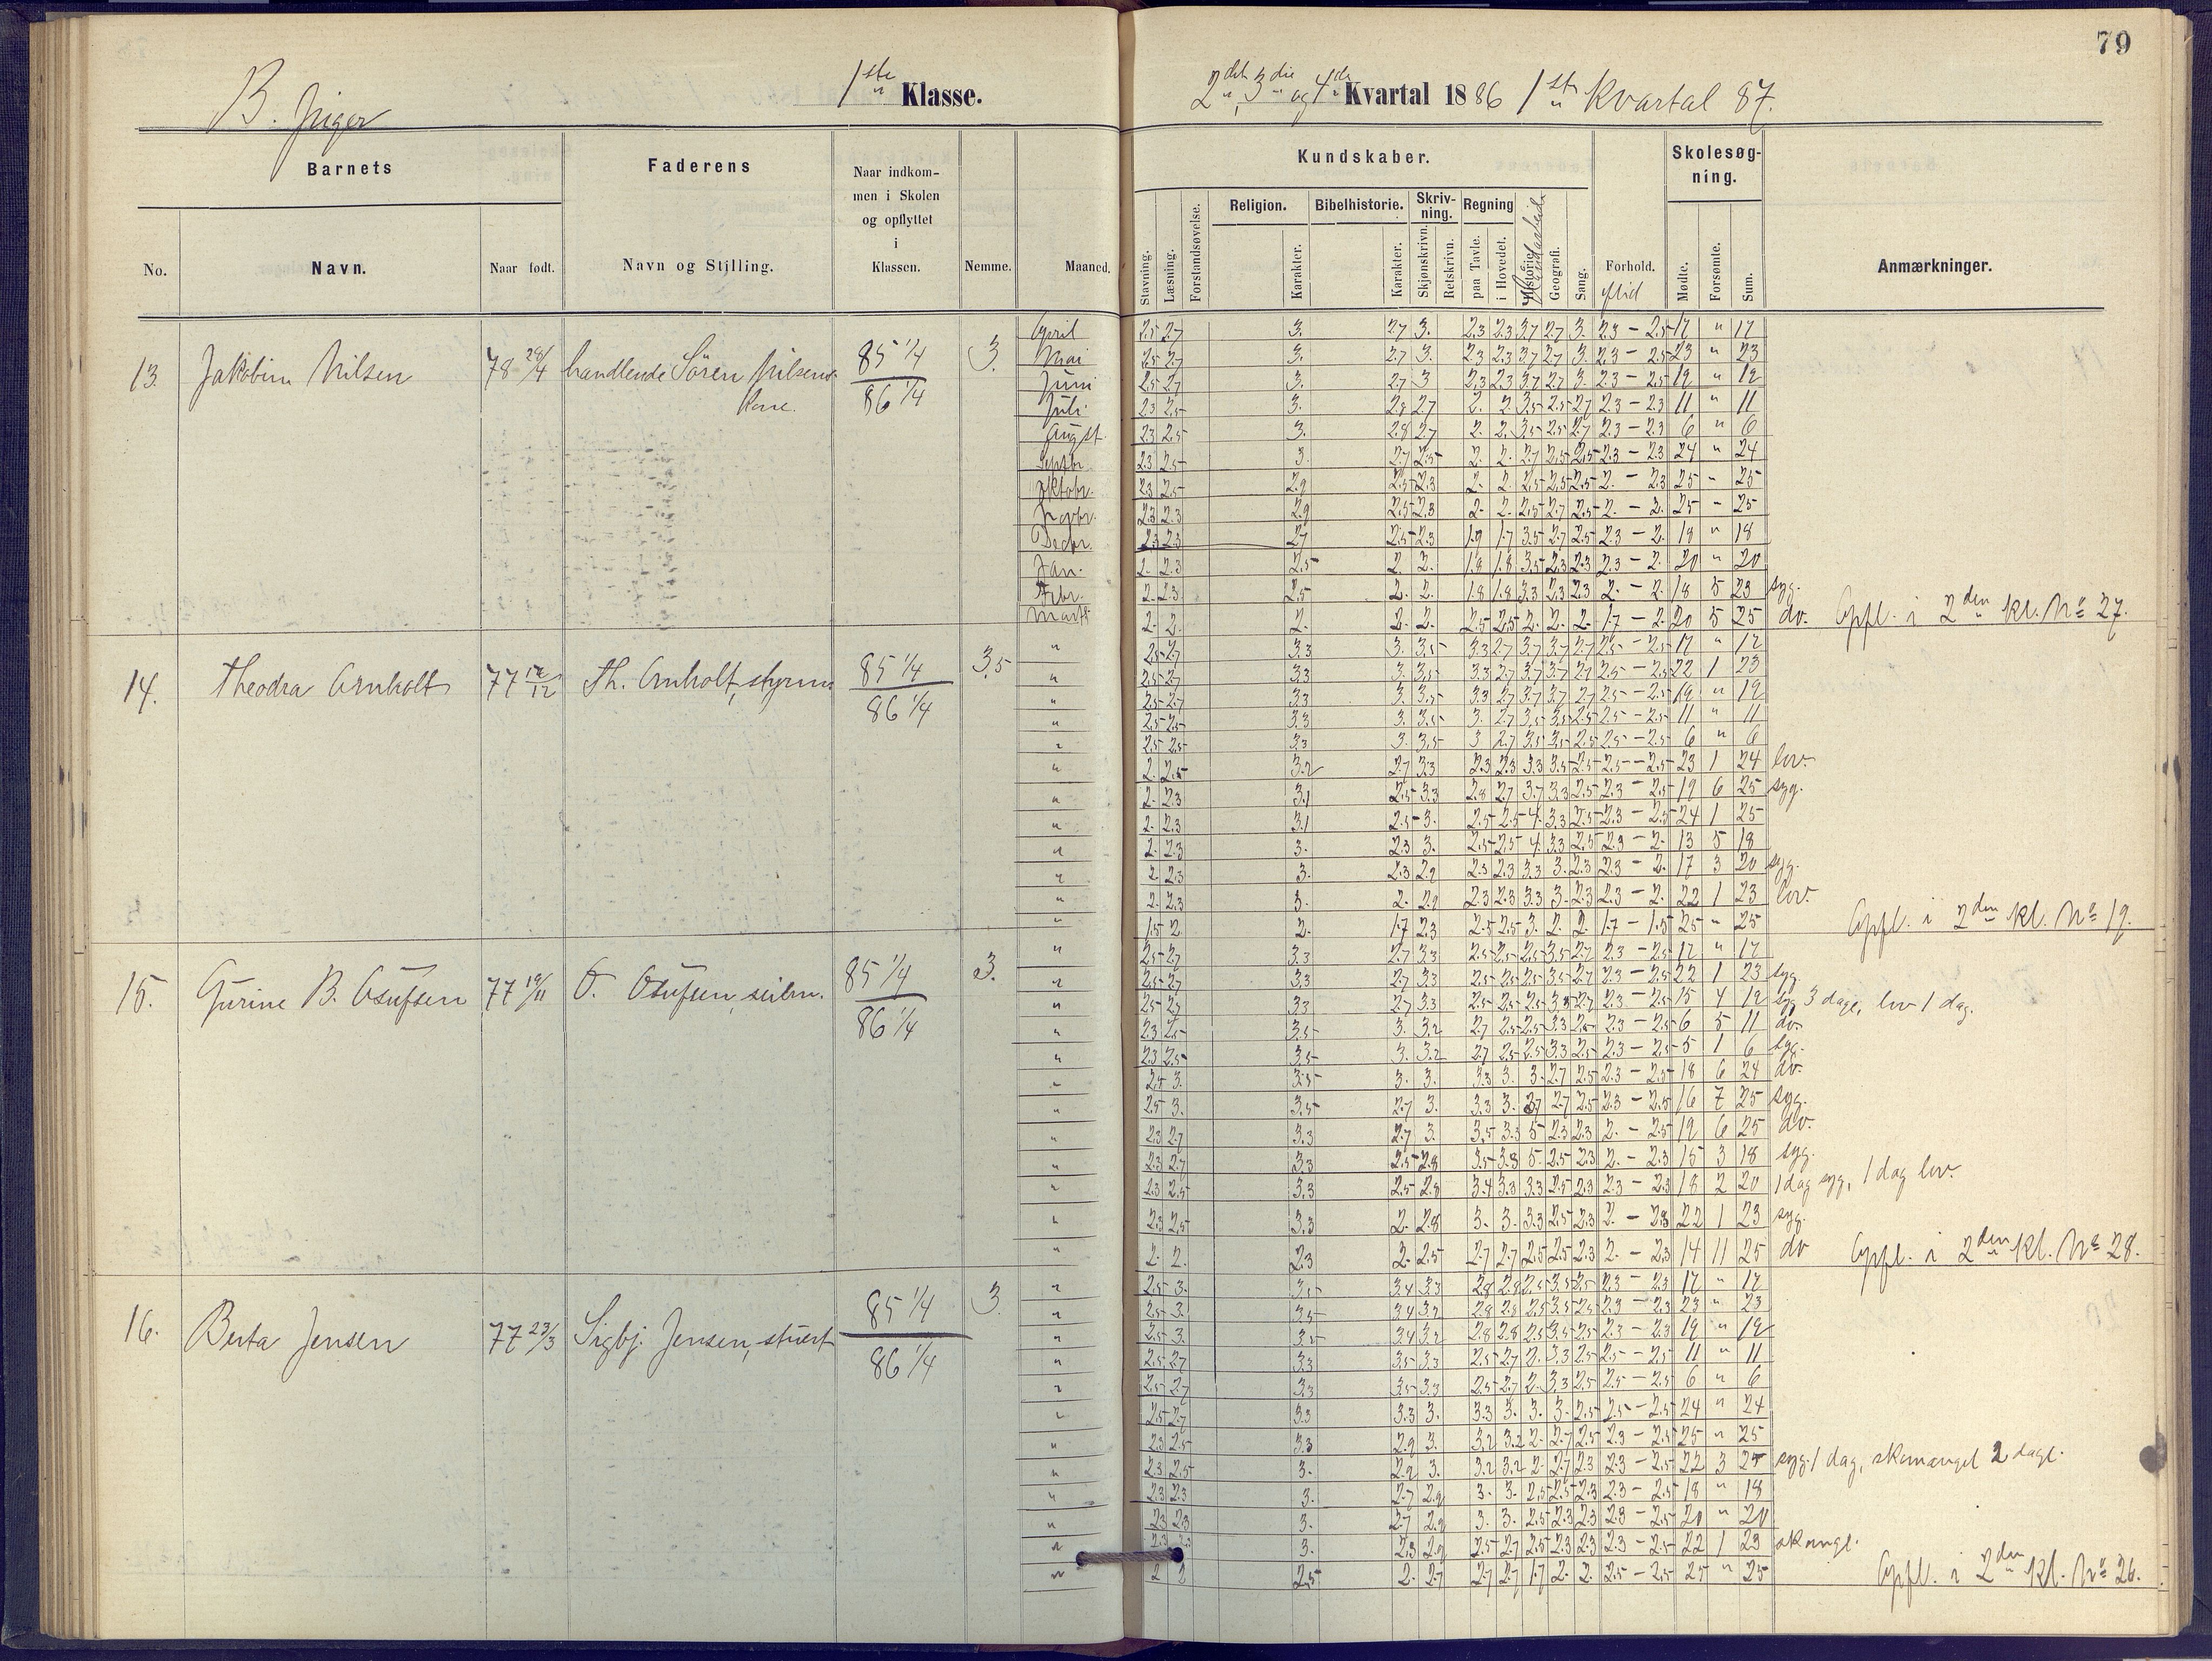 79
B. Piger
1ste Klasse.
2det, 3die og 4de Kvartal 1886 1ste Kvartal 87.
Barnets
Faderens
Naar indkom-
men i Skolen
og opflyttet
i
Klassen.
Kundskaber.
Skolesøg-
ning.
Religion. Bibelhistorie. Skriv-
ning. Regning
No. Navn. Naar født. Navn og Stilling. Nemme. Maaned. Stavning. Læsning. Forstandsøvelse. Karakter. Karakter. Skjønskrivn. Retskrivn. paa Tavle. i Hovedet. Historie. Haandarbeide Geografi. Sang. Forhold. Flid Mødte. Forsømte. Sum. Anmærkninger.
13. Jakobine Nilsen 78 28/4 handlende Sören Nilsens
Kone.
85 1/4
86 1/4
3.
April 2.5 2.7 3. 2.7 3. 2.3 2.3 3.7 2.7 3. 2.3 - 2.5 17 " 17
Mai 2.5 2.7 3. 2.7 3. 2.3 2.3 3.7 2.7 3. 2.3 - 2.5 23 " 23
Juni 2.5 2.7 3. 2.7 3 2.3 2.3 3.7 2.7 3. 2.3 - 2.5 19 " 19
Juli 2.3 2.5 3. 2.8 2.7 2. 2. 3.5 2.5 2.7 2.3 - 2.3 11 " 11
Augst. 2.3 2.5 3. 2.8 2.7 2. 2. 3.5 2.5 2.7 2.3 - 2.3 6 " 6
Septbr. 2.3 2.5 3. 2.7 2.5 2. 2. 2.7 2.5 2.5 2.3 - 2.3 24 " 24
Oktobr. 2.3 2.5 2.9 2.5 2.3 2. 2. 2.5 2.5 2.5 2. - 2.3 25 " 25
Novbr. 2.3 2.3 2.9 2.5 2.3 2. 2. 2.5 2.7 2.5 2. - 2. 25 - 25
Decbr. 2.3 2.3 2.7 2.5 2.3 1.9 1.7 3.5 2.7 2.5 2.3 - 2. 18 " 18
Jan. 2. 2.3 2.5 2. 2. 1.8 1.8 3.5 2.3 2.3 2.3 - 2. 20 " 20
Febr. 2. 2.3 2.5 2. 2. 1.8 1.8 3.3 2.3 2.3 2. - 2. 18 5 23 syg.
Marts 2. 2. 2. 2. 2. 2.5 2.5 2. 2. 2. 1.7 - 2. 20 5 25 do. Opfl. i 2den kl. No 27.
14. Theodra Arnholt 77 12/12 Th. Arnholt, styrm
85 1/4
86 1/4
3.5
" 2.5 2.7 3.3 3. 3.5 3.3 2.7 3.7 3.7 2.7 2.5 - 2.5 17 " 17
" 2.5 2.7 3.3 3. 3.5 3.3 2.7 3.7 3.7 2.7 2.5 - 2.5 22 1 23
" 2.5 2.7 3.3 3. 3.5 3.3 2.7 3.7 3.7 2.7 2.5 - 2.5 19 " 19
" 2.5 2.5 3.3 3. 3.5 3. 2.7 3.5 3.5 2.5 2.5 - 2.5 11 " 11
" 2.5 2.5 3.3 3. 3.5 3 2.7 3.5 3.5 2.5 2.5 - 2.5 6 " 6
" 2. 2.5 3.2 2.7 3.3 2.3 2.3 3.3 3.5 2.5 2.5 - 2.5 23 1 24 lov.
" 2. 2.3 3.1 2.5 3.3 2.8 2.7 3.7 3.3 2.5 2.3 - 2.5 19 6 25 syg.
" 2. 2.3 3.1 2.5 3. 2.5 2.5 4. 3.3 2.5 2.3 - 2.5 24 1 25
" 2. 2.3 3. 2.3 3. 2.5 2.5 4. 3.3 2.5 2.3 - 2. 13 5 18
" 2 2.3 3. 2.3 2.9 2.3 2.3 3.3 3. 2.3 2.3 - 2. 17 3 20 syg.
" 2. 2.3 3. 2. 2.9 2.3 2.3 3.3 3. 2.3 2.3 - 2. 22 1 23 lov.
" 1.5 2 2. 1.7 2.3 2.5 2.5 3. 2. 2. 1.7 - 1.5 25 " 25 Opfl. i 2den kl. No 19.
15. Gurine B. Osufsen 77 19/11 O. Osufsen, seilm.
85 1/4
86 1/4
3.
" 2.5 2.7 3.3 2.7 3.3 2.5 2.5 2.5 3.5 2.7 2.3 - 2.5 17 " 17
" 2.5 2.7 3.3 2.7 3.3 2.5 2.5 2.5 3.5 2.7 2.3 - 2.5 22 1 23 syg
" 2.5 2.7 3.3 2.7 3.3 2.5 2.5 2.5 3.5 2.7 2.3 - 2.5 15 4 19 syg 3 dage, lov 1 dag.
" 2.3 2.5 3.5 3. 3.2 2.7 2.5 2.5 3.3 2.5 2.3 - 2.5 6 5 11 do.
" 2.3 2.5 3.5 3. 3.2 2.7 2.5 2.5 3.3 2.5 2.3 - 2.5 5 1 6 syg.
" 2.5 3. 3.5 3. 3. 3.3 3. 3. 2.7 2.5 2.3 - 2.5 18 6 24 do.
" 2.5 3. 3.5 2.7 3. 3.3 3. 3.7 2.7 2.5 2.3 - 2.5 16 7 25 syg.
" 2.3 2.7 3.3 2.7 3. 3.5 3.3 5 2.3 2.3 2. - 2.5 19 6 25 do.
" 2.3 2.7 3.3 2.5 2.8 3.5 3.3 5. 2.5 2.3 2. - 2.3 15 3 18 syg.
" 2.3 2.5 3.3 2.5 2.8 3.4 3.3 3.3 2.5 2.3 2.3 - 2.3 18 2 20 1 dag syg, 1 dag lov.
" 2.3 2.5 3.3 2. 2.8 3. 3. 3.3 2.5 2.3 2. - 2.3 22 1 23 syg.
" 2. 2. 2.3 2. 2.5 2.7 2.7 2.5 2.5 2.3 2. - 2.3 14 11 25 do Opfl. i 2den kl. No 28.
16. Berta Jensen 77 23/3 Sigbj. Jensen, stuert
85 1/4
86 1/4
3.
" 2.5 3. 3.5 3.4 3.3 2.8 2.8 2.5 3.5 2.5 2.3 - 2.3 17 " 17
" 2.5 3. 3.5 3.4 3.2 2.8 2.8 2.5 3.5 2.5 2.3 - 2.3 23 " 23
" 2.5 3. 3.5 3.4 3.2 2.8 2.8 2.5 3.5 2.5 2.3 - 2.3 19 " 19
" 2.5 2.7 3.3 3.5 3.3 2.5 2.7 2. 3.3 2.5 2.5 - 2.5 11 " 11
" 2.5 2.7 3.3 3.5 3.3 2.5 2.7 2. 3.3 2.5 2.5 - 2.5 6 " 6
" 2.5 2.7 3.3 3.3 3. 3.3 3. 3. 3. 2.5 2.5 - 2.5 24 " 24
" 2.3 2.5 3.3 2.9 3. 3.2 3.2 2. 2.7 2.5 2.3 - 2.5 25 " 25
" 2.3 2.5 3. 2.9 3. 3.2 3.2 2. 2.7 2.3 2.3 - 2.5 22 3 25 syg 1 dag, skomangel 2 dage.
" 2.3 2.3 3. 2.7 2.9 3. 3. 2.5 2.5 2.3 2.3 - 2.5 18 " 18
" 2.3 2.3 3. 2.7 2.9 3. 3. 2.5 2.3 2.3 2.3 - 2.5 20 " 20
" 2.3 2.3 3. 2.3 2.9 2.5 2.7 2.5 2.3 2.3 2.3 - 2.5 22 1 23 skomgl.
" 2 2 2.5 2. 2.7 2.7 2.7 1.7 2. 2. 2.5 - 2.5 25 " 25 Opfl. i 2den Kl. No 26.